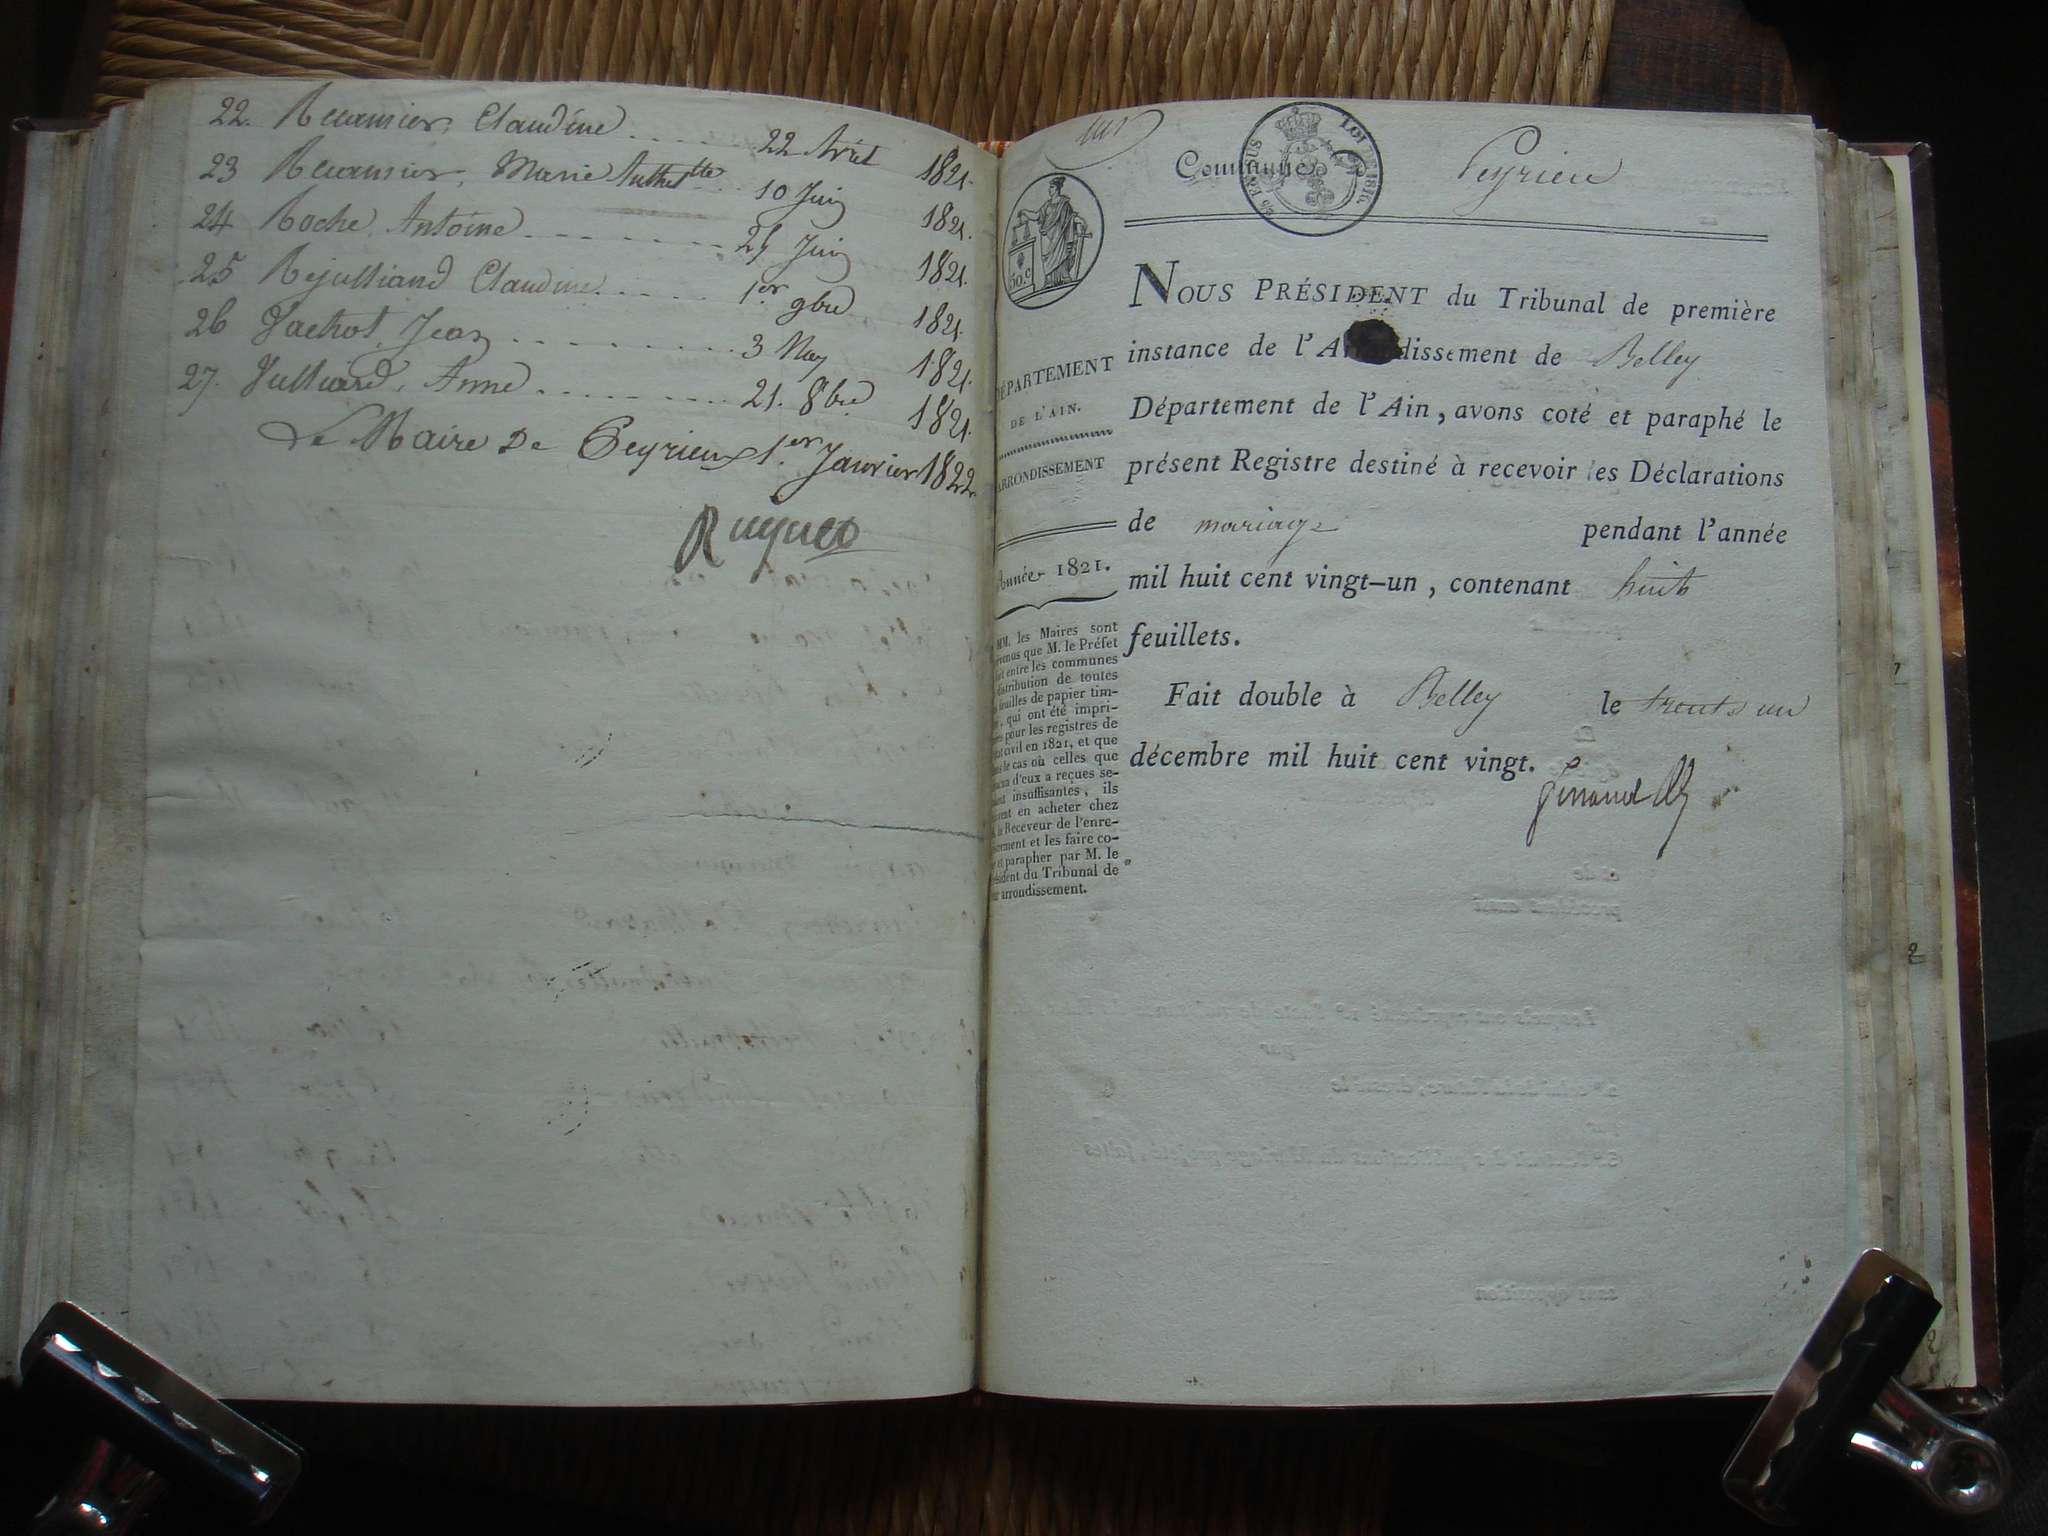 22. Recamier, Claudine 22 Avril 1821.
23 Recamier, Marie Anthel.tte 10 Juin 1821.
24 Roche, Antoine 24 Juin 1821.
25 Rejulliand Claudine 1.er 9bre 1821.
26 Vachot, Jean 3 May 1821.
27. Vulliard, Anne 21. 8bre 1821.
Le Maire de Peyrieux 1.er Janvier 1822.
Commune Peyrieu
50.c
NOUS PRÉSIDENT du Tribunal de première
instance de l'A dissement de Belley
Département de l'Ain, avons coté et paraphé le
présent Registre destiné à recevoir les Déclarations
de mariage pendant l'année
mil huit cent vingt-un, contenant huit
feuillets.
Fait double à Belley le trente un
décembre mil huit cent vingt.
DÉPARTEMENT
DE L'AIN.
ARRONDISSEMENT
Année 1821.
MM. les Maires sont
venus que M. le Préfet
entre les communes
distribution de toutes
feuilles de papier tim-
, qui ont été impri-
pour les registres de
civil en 1821, et que
le cas où celles que
d'eux a reçues se-
insuffisantes, ils
en acheter chez
Receveur de l'enre-
et les faire co-
et parapher par M. le
du Tribunal de
arrondissement.